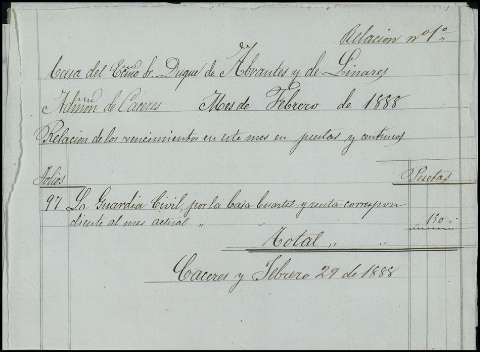 Relacion nº 1º
Casa del Exmo Sr. Duque de Abrantes y de Linares
Admon de Caceres Mes de Febrero de 1888
Relacion de los vencimientos en este mes en pesetas y centimos
Folios Pesetas
97 La Guardia Civil, por la Casa Cuartel y renta correspon
diente al mes actual „ 130
Total „ „
Caceres y Febrero 29 de 1888